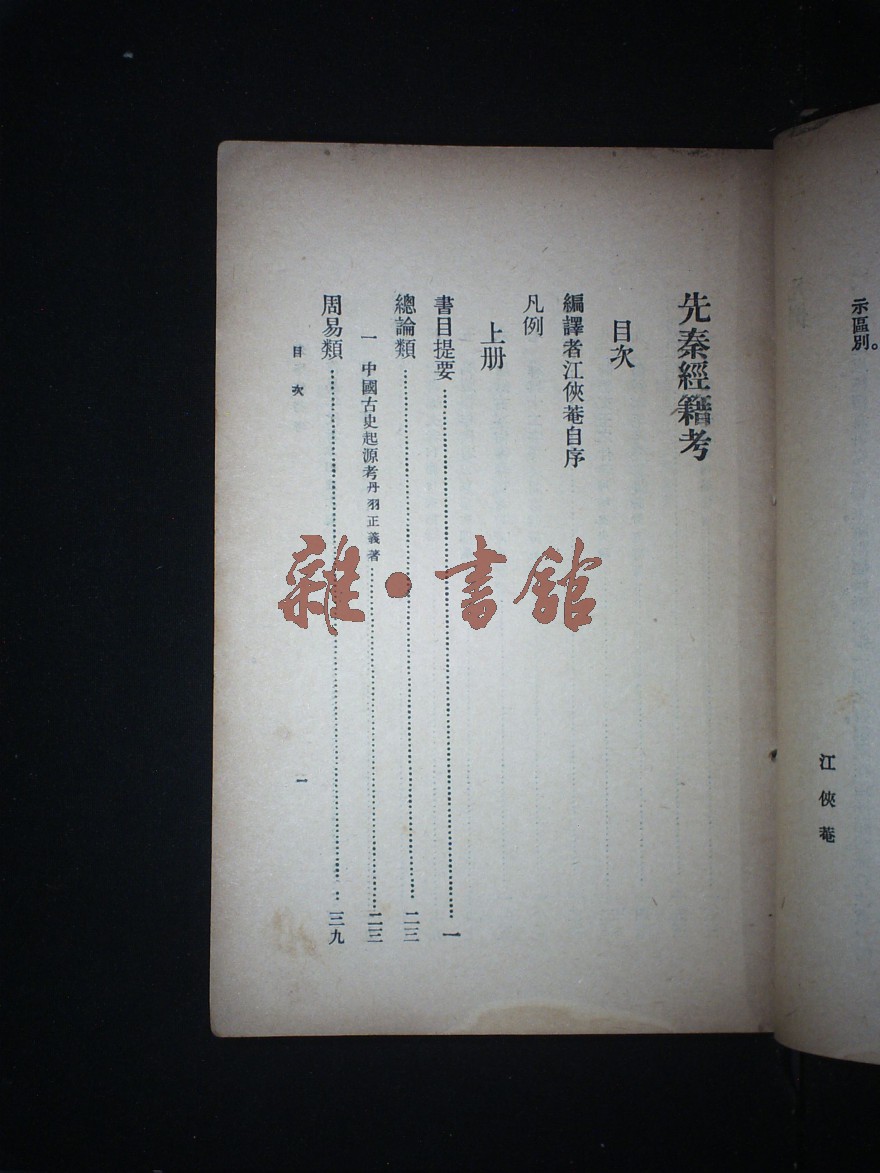 示區別。
江俠菴
先秦經籍考
目次
編譯者江俠菴自序
凡例
上册
書目提要……一
總論類……二三
一 中國古史起源考丹羽正義著……二三
周易類……三九
目次 一
雜·書館